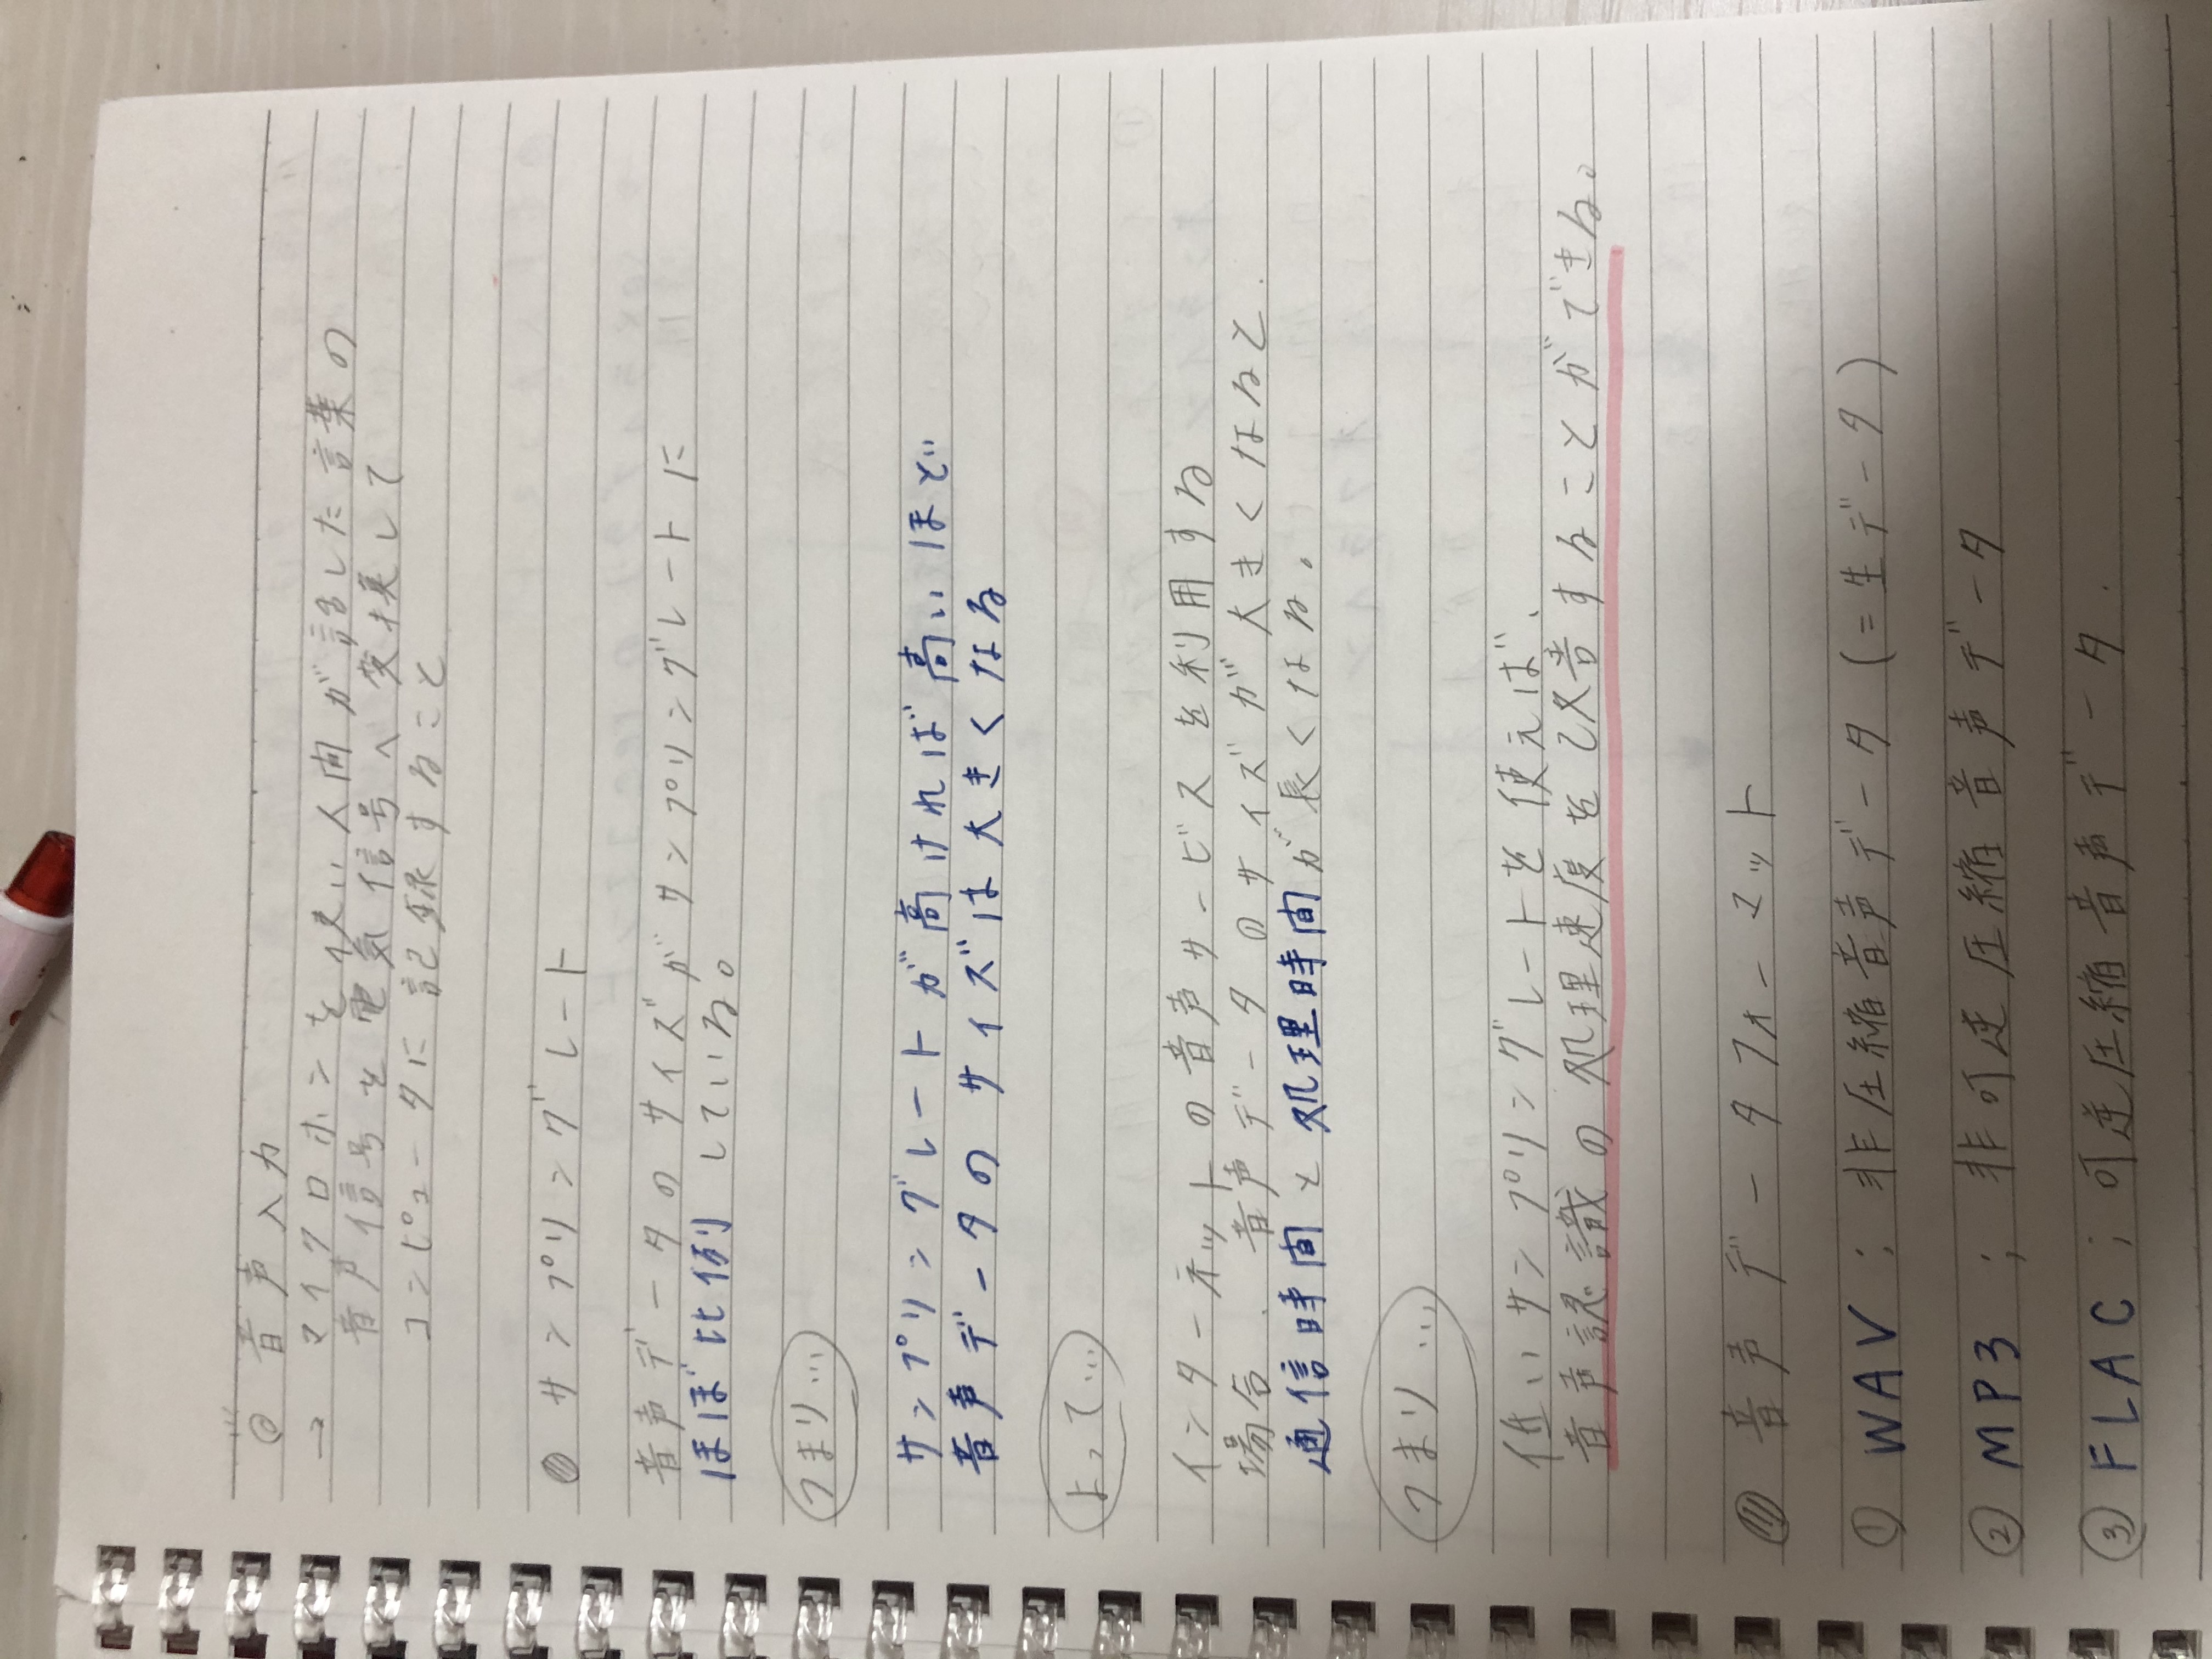 ◎ 音声入力
→ マイクロホンを使い人間が話した言葉の
音声信号を電気信号へ変換して
コンピュータに記録すること
サンプリングレート
音声データのサイズがサンプリングレートに
ほぼ比例している。
つまり…
サンプリングレートが高ければ高いほど
音声データのサイズは大きくなる
よって…
インターネットの音声サービスを利用する
場合、音声データのサイズが大きくなると、
通信時間と処理時間が長くなる。
つまり…
低いサンプリングレートを使えば、
音声認識の処理速度を改善することができる。
音声データフォーマット
① WAV ; 非圧縮音声データ (=生データ)
② MP3 ; 非可逆圧縮音声データ
③ FLAC ; 可逆圧縮音声データ.